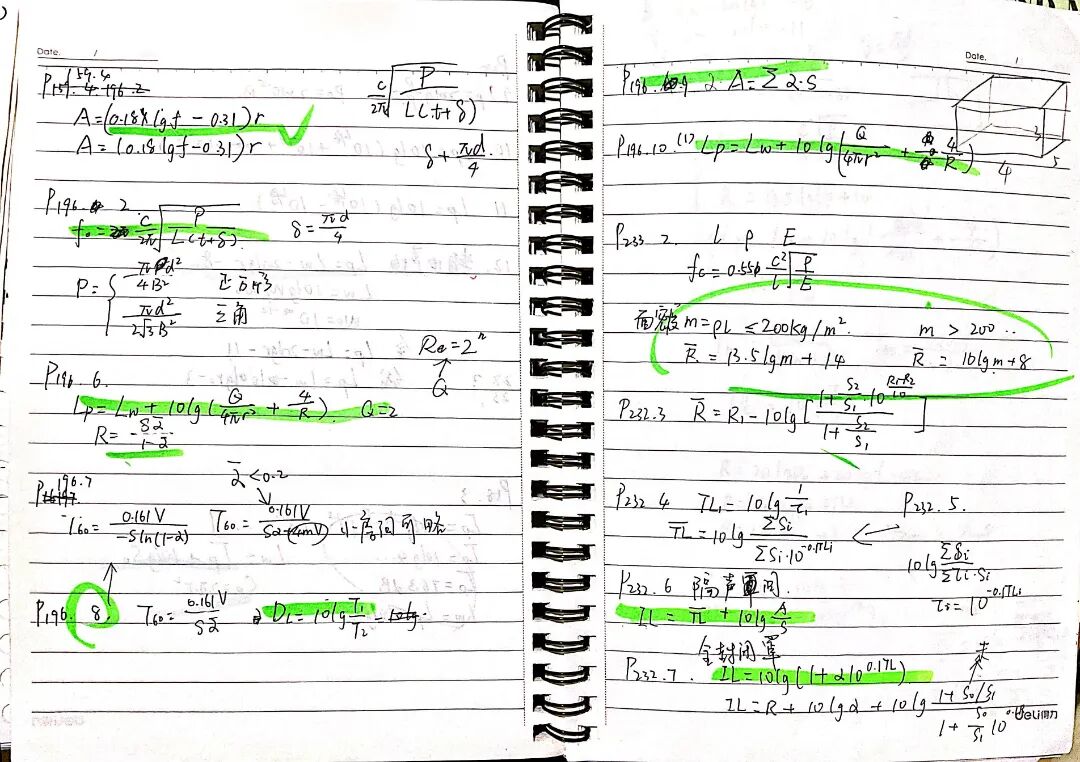 Date. /
P159.4
A=(0.18lgf-0.31)r
A=(0.18lgf-0.31)r
c/2π √(P/L(t+δ))
δ+πd/4
P196. 2.
f₀= c/2π √(P/L(t+δ))
δ=πd/4
P={ πd²/4B² 正方形
πd²/2√3B² 三角
Re=2ⁿ
Q
P196. 6.
Lp=Lw+10lg(Q/4πr²+4/R) Q=2
R=Sᾱ/1-ᾱ
ᾱ<0.2
196.7
T60=0.161V/-Sln(1-ᾱ) T60=0.161V/Sᾱ+(4mV) 小房间可略
P196. 8. T60=0.161V/Sᾱ DL=10lg T1/T2
Date. /
P196. 9 ᾱ A=Σᾱ·S
3
4
5
P196.10.(1) Lp=Lw+10lg(Q/4πr²+4/R)
P233.2. l ρ E
fc=0.551 c²/l √(ρ/E)
面密度m=ρL ≤200kg/m². m > 200..
R̄=13.5lgm+14 R̄=16lgm+8
P232.3 R̄=R1-10lg[(1+S2/S1·10^(R1-R2/10))/(1+S2/S1)]
P232.4 TL1=10lg 1/τ1 P232.5.
T̄L=10lg ΣSi/ΣSi·10^-0.1TLi
10lg ΣSi/Στi·Si
τi=10^-0.1TLi
P232.6 隔声量间.
IL=T̄L+10lg A/S
全封闭罩
P232.7. IL=10lg(1+α10^0.1TL)
IL=R+10lgα+10lg (1+S0/S1)/(1+S0/S1 10^0.1R)
Deli